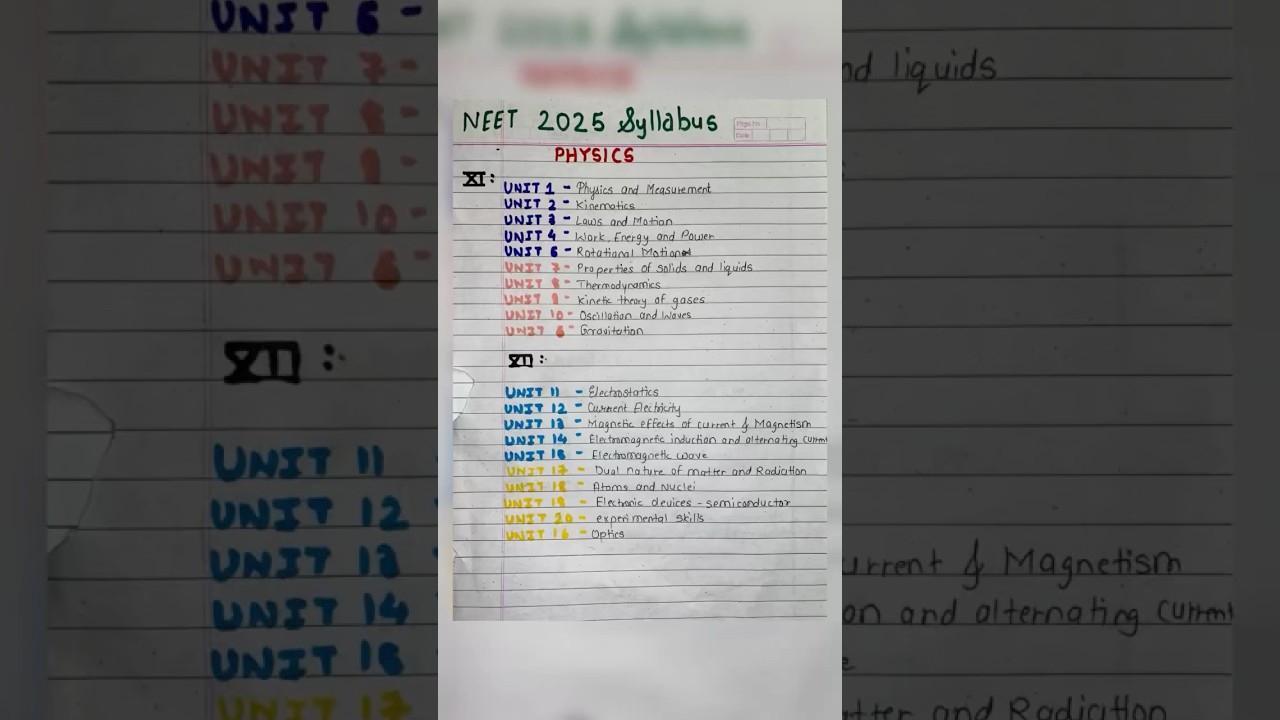 NEET 2025 Syllabus
Page No
Date
PHYSICS
XI:
UNIT 1 - Physics and Measurement
UNIT 2 - Kinematics
UNIT 3 - Laws and Motion
UNIT 4 - Work, Energy and Power
UNIT 5 - Rotational Motion
UNIT 7 - Properties of solids and liquids
UNIT 8 - Thermodynamics
UNIT 9 - Kinetic theory of gases
UNIT 10 - Oscillation and Waves
UNIT 6 - Gravitation
XII:
UNIT 11 - Electrostatics
UNIT 12 - Current Electricity
UNIT 13 - Magnetic effects of current & Magnetism
UNIT 14 - Electromagnetic induction and alternating current
UNIT 15 - Electromagnetic wave
UNIT 17 - Dual nature of matter and Radiation
UNIT 18 - Atoms and Nuclei
UNIT 19 - Electronic devices - semiconductor
UNIT 20 - experimental skills
UNIT 16 - Optics